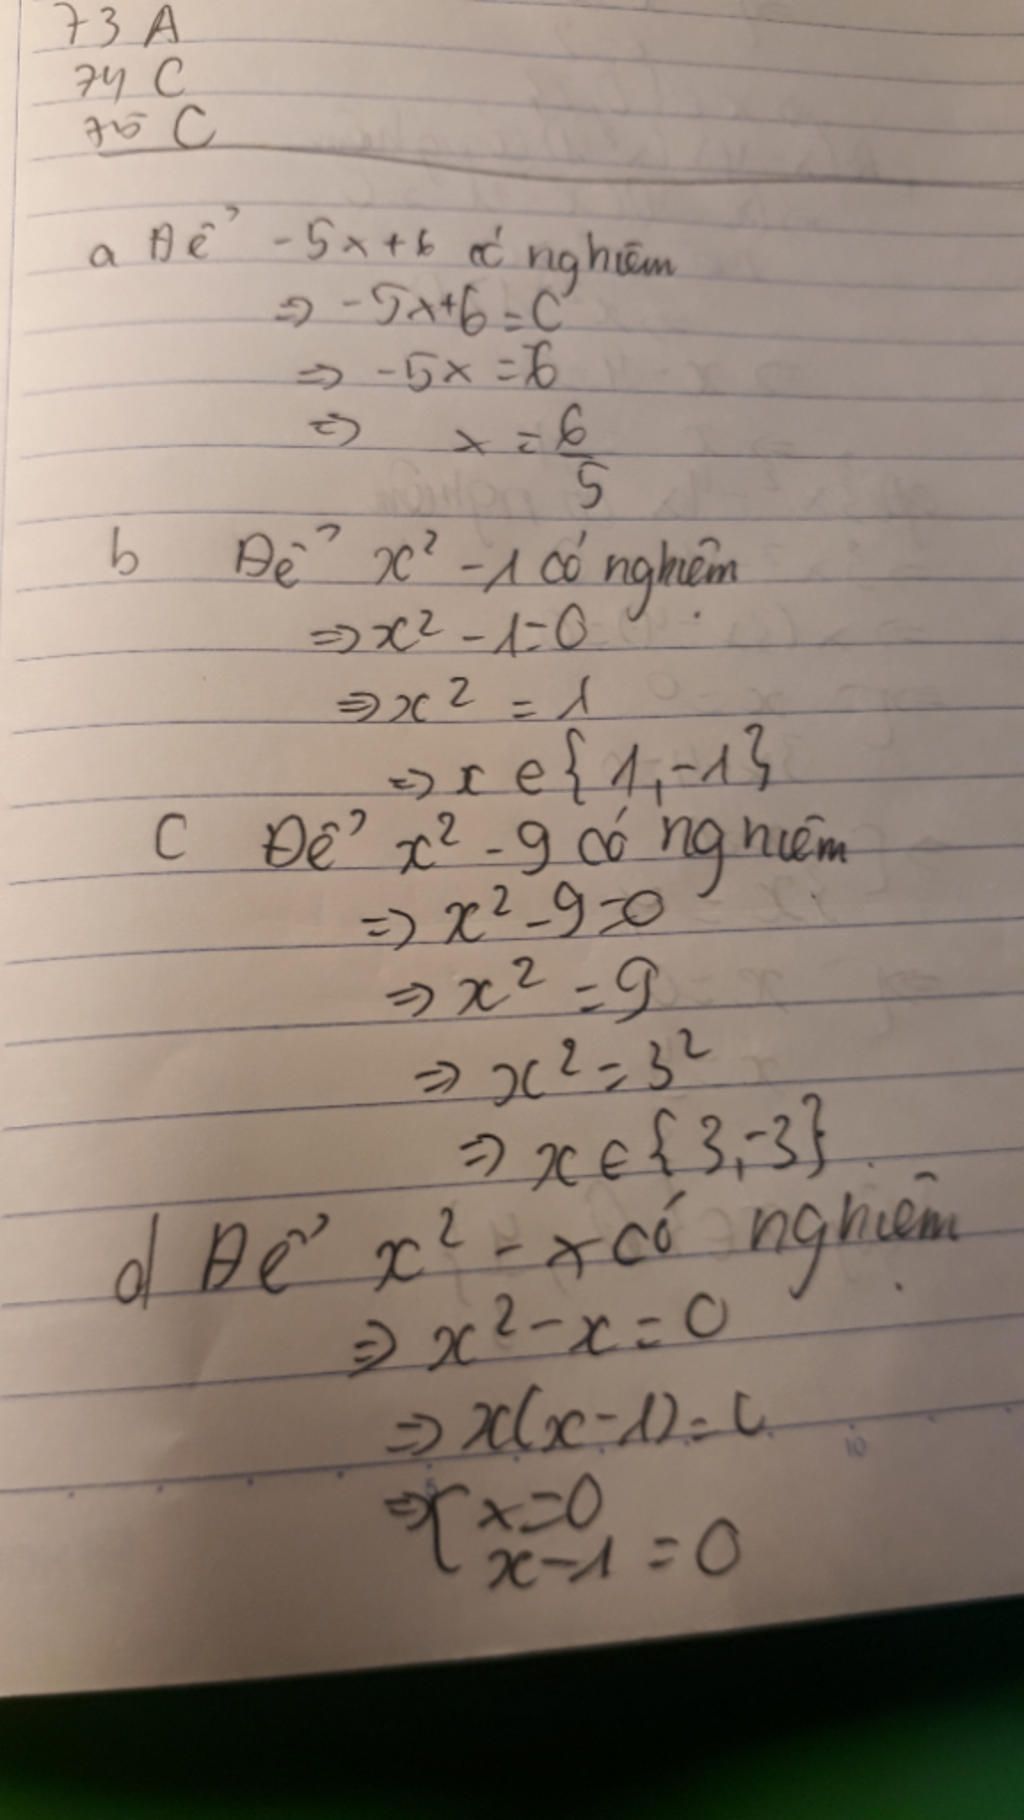 73 A
74 C
75 C
a Để -5x+6 có nghiêm
⇒ -5x+6=0
⇒ -5x = -6
⇒ x = 6/5
b Để x² -1 có nghiệm
⇒ x² - 1=0
⇒ x² = 1
⇒ x ∈ {1,-1}
C Để x² - 9 có nghiệm
⇒ x² - 9=0
⇒ x² = 9
⇒ x² = 3²
⇒ x ∈ {3,-3}
d Để x² - x có nghiệm
⇒ x² - x = 0
⇒ x(x-1) = 0
⇒ [ x=0
x-1 = 0